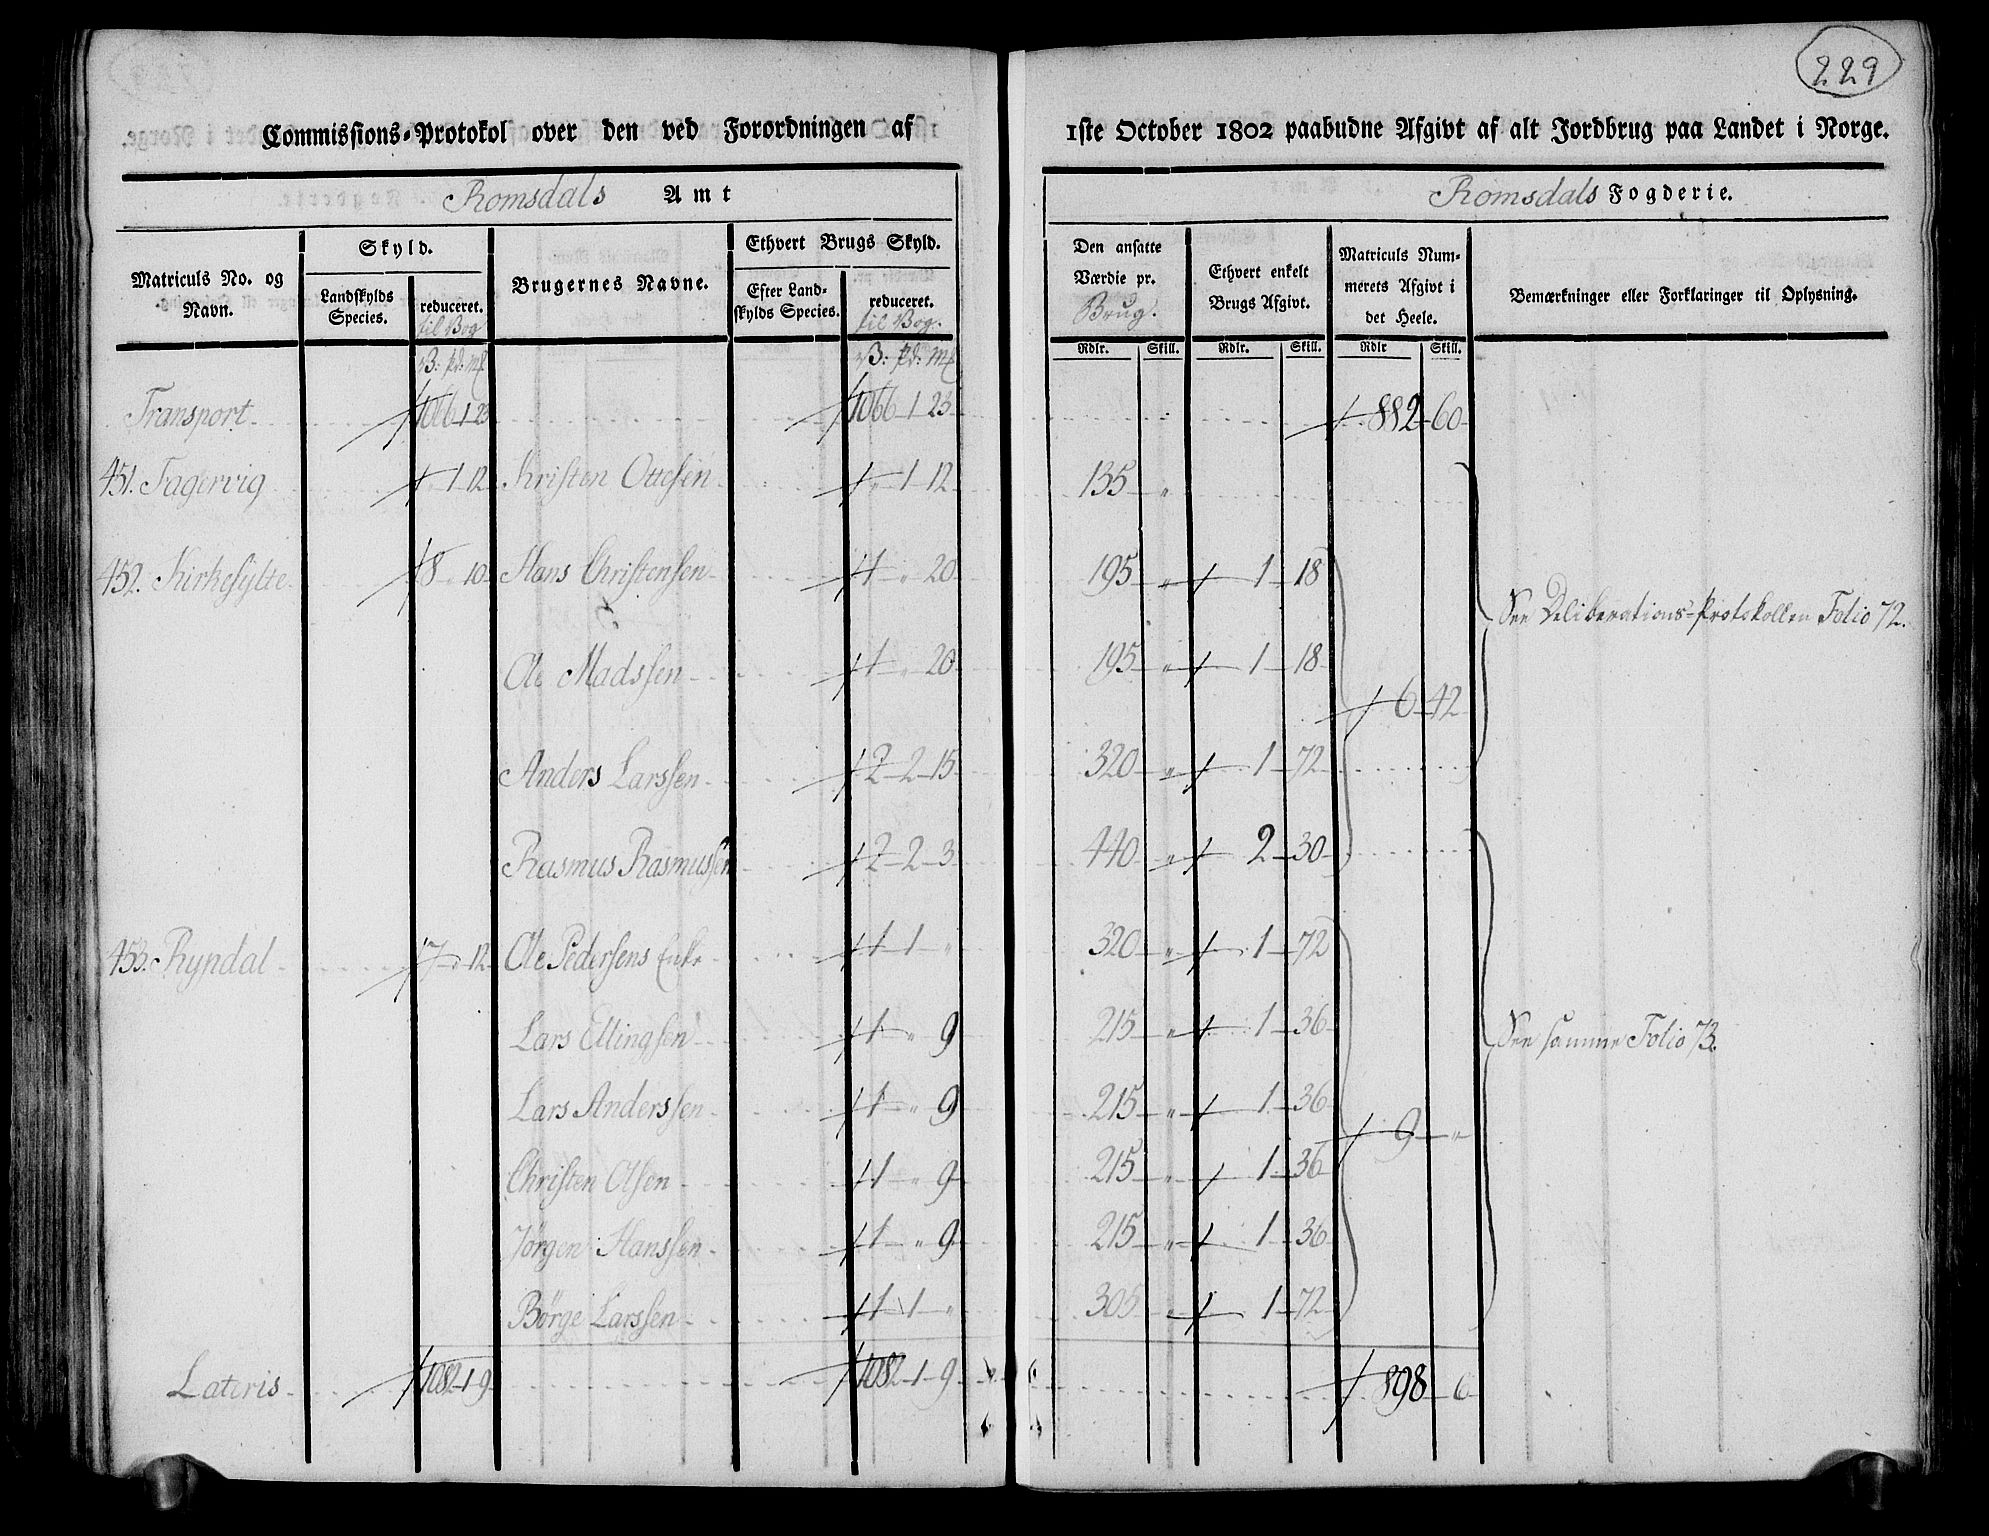 229
Commissions-Protokol over den ved Forordningen af 1ste October 1802 paabudne Afgivt af alt Jordbrug paa Landet i Norge.
Romsdals Amt
Romsdals Fogderie.
Matriculs No. og Navn.
Skyld.
Landskylds Species.
reduceret. til Vog
Brugernes Navne.
Ethvert Brugs Skyld.
Efter Landskylds Species.
reduceret. til Vog.
Den ansatte Værdie pr. Brug.
Ethvert enkelt Brugs Afgivt.
Matriculs Nummerets Afgivt i det Heele.
Bemærkninger eller Forklaringer til Oplysning.
V: pd: mk V: pd: mk Rdlr. Skill. Rdlr. Skill. Rdlr Skill.
Transport 1066-1-23 1066-1-23 882-60
451. Fagervig " 1-12 Kristen Ottesen " 1-12 135 "
452. Kirkesylte 8 " 10 Hans Christensen 1 " 20 195 " 1-18
See Deliberations-Protokollen Folio 72.
Ole Madssen 1 " 20 195 " 1-18
6-42
Anders Larssen 2-2-15 320 " 1-72
Rasmus Rasmussen 2-2-3 440 " 2-30
453. Ryndal 7 " 12 Ole Pedersens Enke 1 1 " 320 " 1-72
Lars Ellingsen 1 " 9 215 " 1-36
See samme Folio 73.
Lars Anderssen 1 " 9 215 " 1-36
9 "
Christen Olsen 1 " 9 215 1-36
Jörgen Hanssen 1 " 9 215 " 1-36
Börge Larssen 1 1 " 305 " 1-72
Lateris 1082-1-9 1082-1-9 898-6